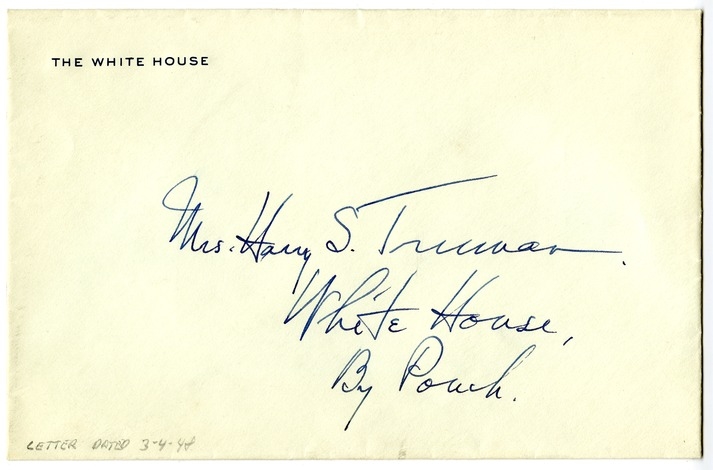 THE WHITE HOUSE
Mrs. Harry S. Truman.
White House,
By Pouch.
LETTER DATED 3-4-48